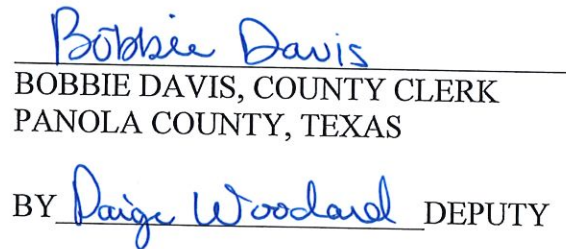 Bobbie Davis
BOBBIE DAVIS, COUNTY CLERK
PANOLA COUNTY, TEXAS
BY Paige Woodard DEPUTY